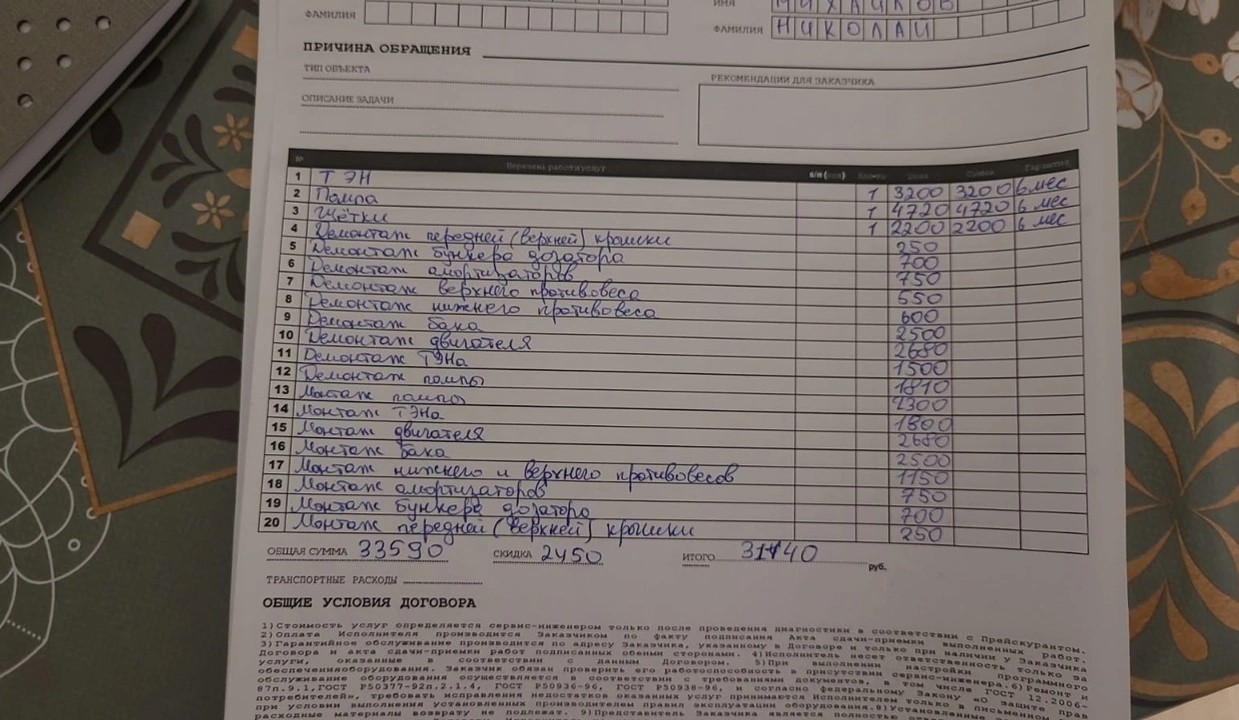 ИМЯ МИХАЙЛОВ
ФАМИЛИЯ ФАМИЛИЯ НИКОЛАЙ
ПРИЧИНА ОБРАЩЕНИЯ
ТИП ОБЪЕКТА РЕКОМЕНДАЦИИ ДЛЯ ЗАКАЗЧИКА
ОПИСАНИЕ ЗАДАЧИ
№ Перечень работ/услуг Гарантия
1 ТЭН 1 3200 3200 6 мес
2 Помпа 1 4720 4720 6 мес
3 Щётки 1 2200 2200 6 мес
4 Демонтаж передней (верхней) крышки 250
5 Демонтаж бункера дозатора 700
6 Демонтаж амортизаторов 750
7 Демонтаж верхнего противовеса 550
8 Демонтаж нижнего противовеса 600
9 Демонтаж бака 2500
10 Демонтаж двигателя 2680
11 Демонтаж ТЭНа 1500
12 Демонтаж помпы 1810
13 Монтаж помпы 2300
14 Монтаж ТЭНа 1800
15 Монтаж двигателя 2680
16 Монтаж бака 2500
17 Монтаж нижнего и верхнего противовесов 1150
18 Монтаж амортизаторов 750
19 Монтаж бункера дозатора 700
20 Монтаж передней (верхней) крышки 250
ОБЩАЯ СУММА 33590 СКИДКА 2450 ИТОГО 31140 руб.
ТРАНСПОРТНЫЕ РАСХОДЫ
ОБЩИЕ УСЛОВИЯ ДОГОВОРА
1)Стоимость услуг определяется сервис-инженером только после проведения диагностики в соответствии с Прейскурантом.
2)Оплата Исполнителя производится Заказчиком по факту подписания Акта сдачи-приемки выполненных работ.
3)Гарантийное обслуживание производится по адресу Заказчика, указанному в Договоре и только при наличии у Заказчика
Договора и акта сдачи-приемки работ подписанных обеими сторонами. 4)Исполнитель несет ответственность только за
услуги, оказанные в соответствии с данным Договором. 5)При выполнении настройки программного
обеспечения/оборудования. Заказчик обязан проверить его работоспособность в присутствии сервис-инженера. 6)Ремонт и
обслуживание оборудования осуществляется в соответствии с требованиями документов, в том числе ГОСТ 12.2006-
87п.9.1, ГОСТ Р50377-92п.2.1.4, ГОСТ Р50936-96, ГОСТ Р50938-96, и согласно федеральному Закону «О защите Прав
потребителей», требовать исправления недостатков оказанных услуг принимаются Исполнителем только в письменном
при условии выполнения установленных производителем правил эксплуатации оборудования. 8)Установленные
расходные материалы возврату не подлежат. 9)Представитель Заказчика является полностью